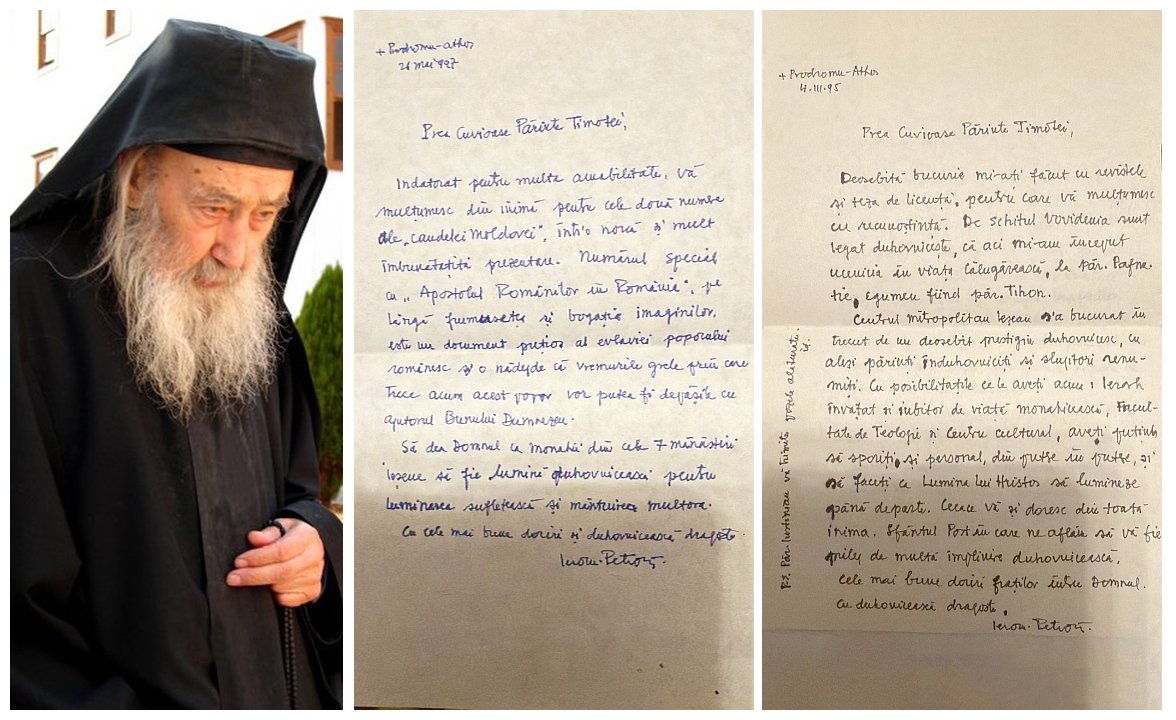 + Prodromu-Athos
28 mai 997
Prea Cuvioase Părinte Timotei,
Indatorat pentru multa amabilitate, vă
mulțumesc din inimă pentru cele două numere
ale „Candelei Moldovei", într'o nouă și mult
îmbunătățită prezentare. Numărul special
cu „Apostolul Românilor în România", pe
lîngă frumusețea și bogăția imaginilor,
este un document prețios al evlaviei poporului
românesc și o nădejde că vremurile grele prin care
trece acum acest popor vor putea fi depășite cu
ajutorul Bunului Dumnezeu.
Să dea Domnul ca monahii din cele 7 mănăstiri
ieșene să fie lumină duhovnicească pentru
luminarea sufletească și mântuirea multora.
Cu cele mai bune doriri și duhovnicească dragoste.
Ierom. Petroniu.
+ Prodromu-Athos
4.III.95
Prea Cuvioase Părinte Timotei,
Deosebită bucurie mi-ați făcut cu revistele
și teza de licență, pentru care vă mulțumesc
cu recunoștință. De Schitul Vovidenia sunt
legat duhovnicește, că aci mi-am început
ucenicia în viața călugărească, la Păr. Pafnu-
tie, egumen fiind păr. Tihon.
Centrul mitropolitan ieșean s'a bucurat în
trecut de un deosebit prestigiu duhovnicesc, cu
aleși părinți înduhovniciți și slujitori renu-
miți. Cu posibilitățile ce le aveți acum: Ierarh
învățat și iubitor de viață monahicească, Facul-
tate de Teologie și Centru cultural, aveți putința
să sporiți, și personal, din putere în putere, și
să faceți ca Lumina lui Hristos să lumineze
până departe. Ceeace vă și doresc din toată
inima. Sfântul Post în care ne aflăm să vă fie
prilej de multă împlinire duhovnicească.
Cele mai bune doriri fraților întru Domnul.
Cu duhovnicească dragoste,
Ierom. Petroniu.
P.S. Păr. Iustinian vă trimite alăturate.